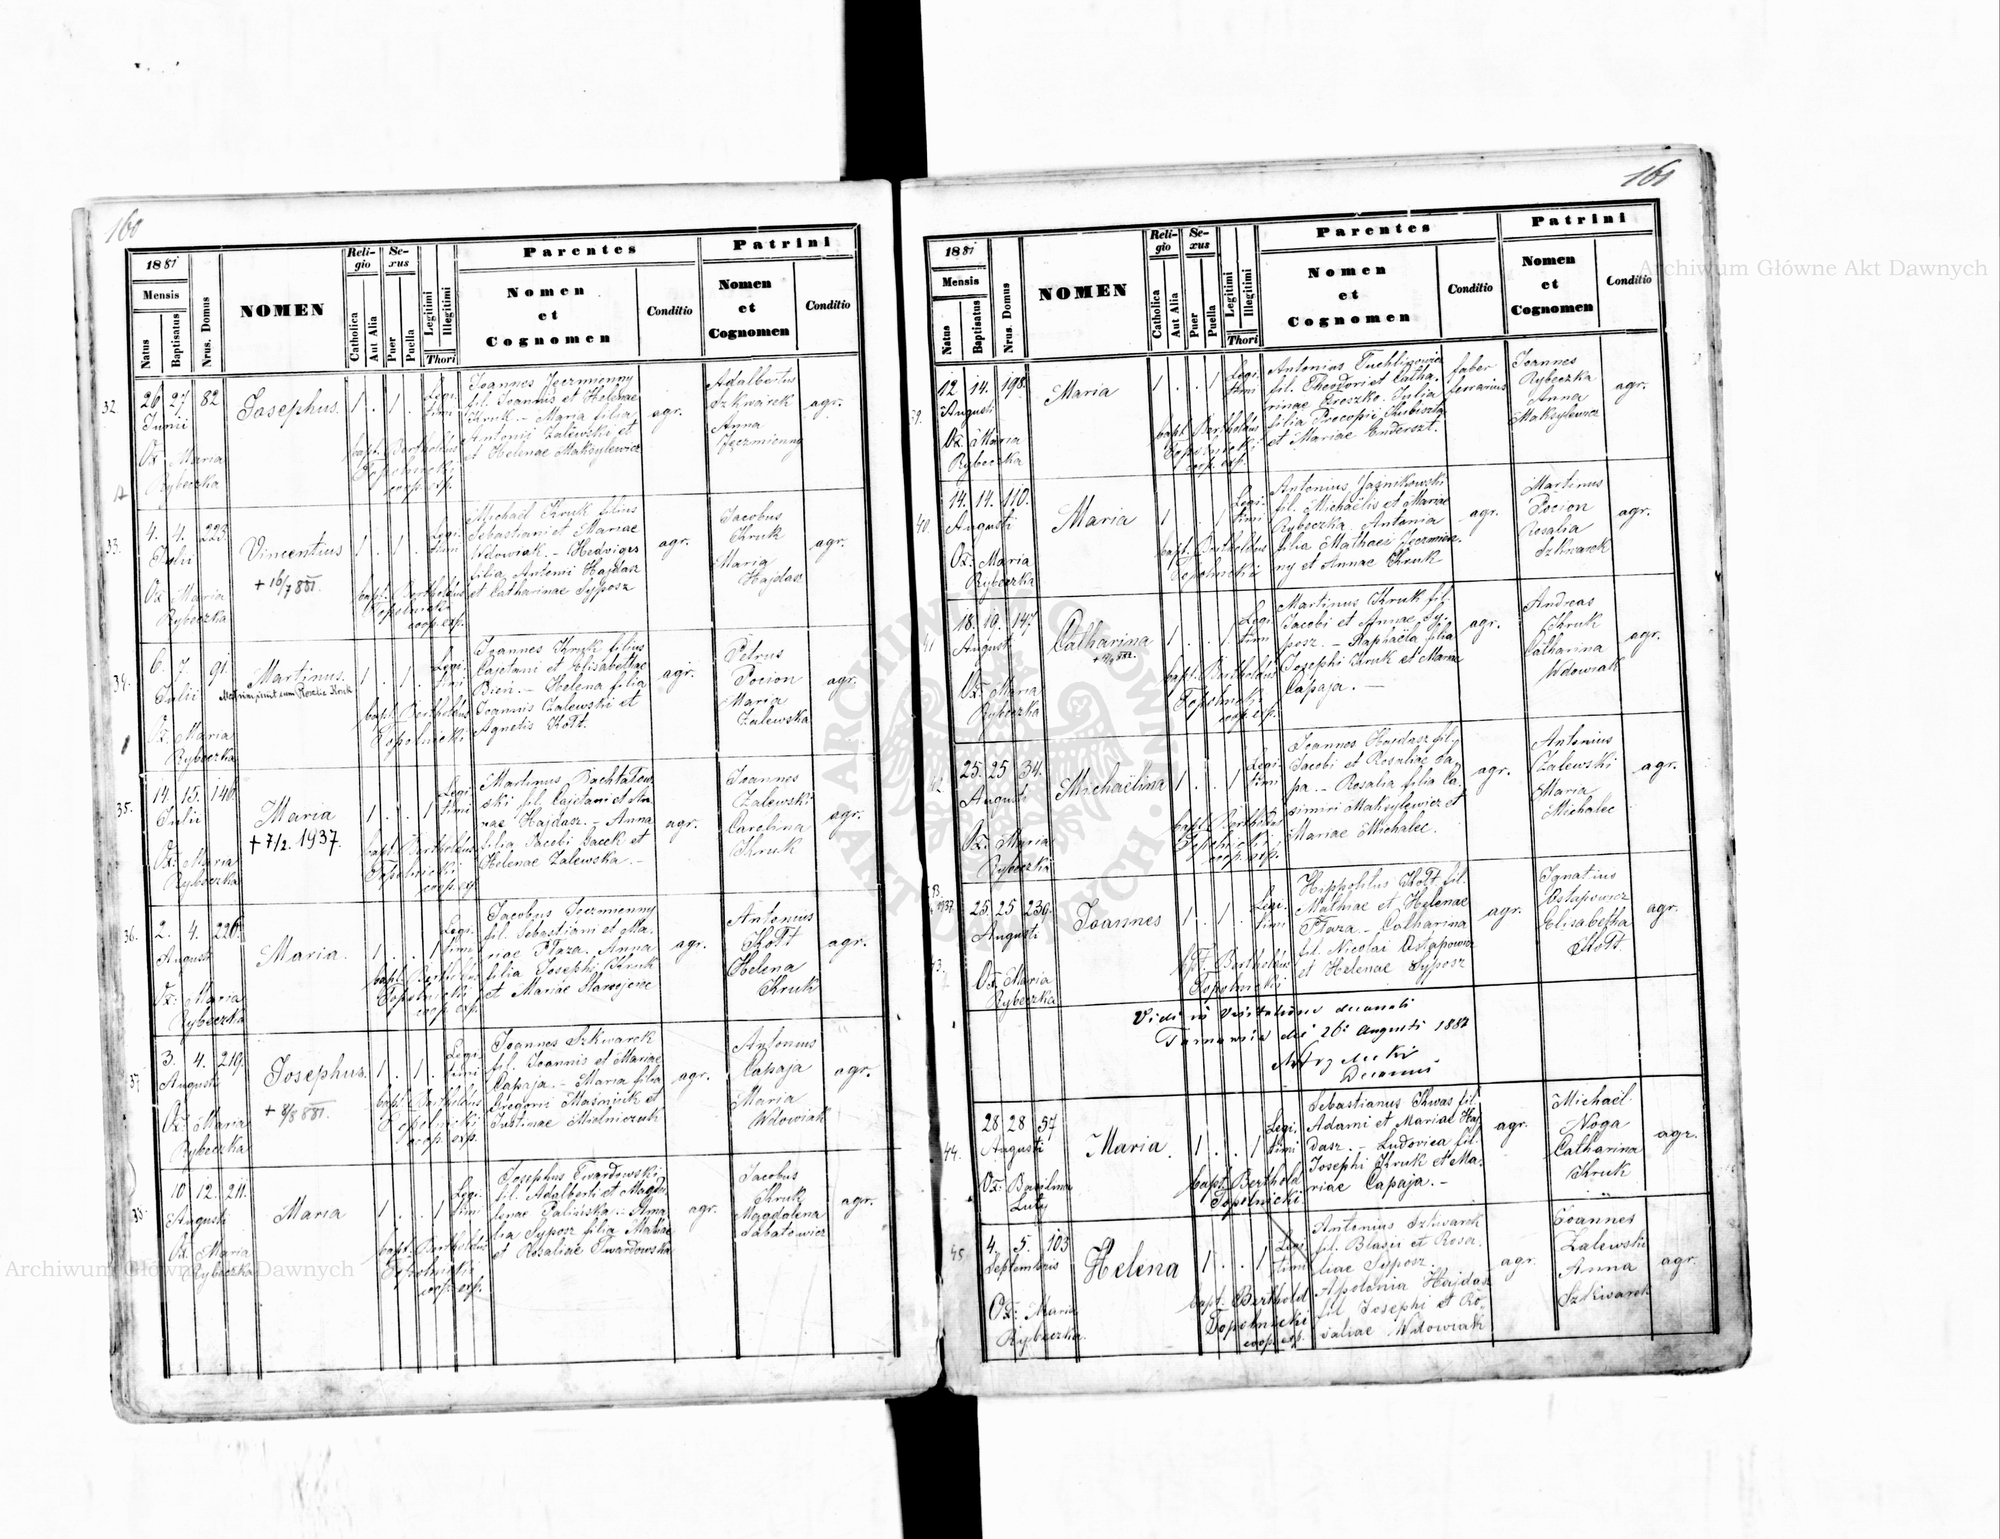 160
1881
Mensis
Natus
Baptisatus
Nrus. Domus
NOMEN
Reli-
gio
Catholica
Aut Alia
Se-
xus
Puer
Puella
Legitimi
Illegitimi
Thori
Parentes
Nomen
et
Cognomen
Conditio
Patrini
Nomen
et
Cognomen
Conditio
32
26 27 82
Junii
Ox Maria
Rybeczka
Josephus.
1 . 1 . Legi-
timi
bapt. Bertholdus
Topolnicki
coop. exp.
Joannes Jeczmienny
fil. Joannis et Helenae
Kruk. - Maria filia
Antonii Zalewski et
et Helenae Maksylewicz
agr.
Adalbertus
Szkwarek
Anna
Jeczmienny
agr.
33.
4. 4. 223.
Julii
Ox Maria
Rybeczka
Vincentius
+ 16/7 881.
1 . 1 . Legi-
timi
bapt. Bertholdus
Topolnicki
coop. exp.
Michaël Kruk filius
Sebastiani et Mariae
Wdowiak. - Hedviges
filia Antoni Hajdasz
et Catharinae Syposz
agr.
Jacobus
Kruk
Maria
Hajdasz
agr.
34.
6. 7. 91.
Julii
Ox. Maria
Rybeczka
Martinus.
1 . 1 . Legi-
timi
bapt. Bertholdus
Topolnicki
Joannes Kruk filius
Cajetani et Elisabethae
Bień. - Helena filia
Joannis Zalewski et
Agnetis Kott.
agr.
Petrus
Pocion
Maria
Zalewska
agr.
35.
14. 15. 146.
Julii
Ox: Maria
Rybeczka
Maria
+ 7/2. 1937.
1 . . 1 Legi-
timi
bapt. Bertholdus
Topolnicki
coop. exp.
Martinus Bachtałow-
ski fil. Cajetani et An-
nae Hajdasz. - Anna
filia Jacobi Jacek et
Helenae Zalewska. -
agr.
Joannes
Zalewski
Carolina
Kruk
agr.
36.
2. 4. 226.
Augusti
Ox: Maria
Rybeczka
Maria.
1 . . 1 Legi-
timi
bapt. Bertholdus
Topolnicki
coop. exp.
Jacobus Jeczmienny
fil. Sebastiani et Ma-
riae Płaza. Anna
filia Josephi Kruk
et Mariae
agr.
Antonius
Kott
Helena
Kruk
agr.
37.
3. 4. 219.
Augusti
Ox: Maria
Rybeczka
Josephus.
+ 8/8 881.
1 . 1 . Legi-
timi
bapt. Bertholdus
Topolnicki
coop. exp.
Joannes Szkwarek
fil. Joannis et Mariae
Capaja. - Maria filia
Gregorii Maśnijik et
Justinae Mielniczuk
agr.
Antonius
Capaja
Maria
Wdowiak
agr.
38.
10. 12. 211.
Augusti
Ox. Maria
Rybeczka
Maria
1 . . 1 Legi-
timi
bapt. Bertholdus
Topolnicki
coop. exp.
Josephus Twardowski
fil. Adalberti et Magda-
lenae Palińska. - Ama-
lia Syposz filia Mathiae
et Rosaliae Twardowska
agr.
Jacobus
Kruk
Magdalena
Sabatowicz
agr.
161
1881
Mensis
Natus
Baptisatus
Nrus. Domus
NOMEN
Reli-
gio
Catholica
Aut Alia
Se-
xus
Puer
Puella
Legitimi
Illegitimi
Thori
Parentes
Nomen
et
Cognomen
Conditio
Patrini
Nomen
et
Cognomen
Conditio
39.
12. 14. 198.
Augusti
Ox. Maria
Rybeczka
Maria
1 . . 1 Legi-
timi
bapt. Bertholdus
Topolnicki
coop. exp.
Antonius
fil. Theodori et Catha-
rinae Groszko. Julia
filia Procopii Kubiszta
et Mariae Enderszt.
faber
ferrarius
Joannes
Rybeczka
Anna
Maksylewicz
agr.
40.
14. 14. 110.
Augusti
Ox: Maria
Rybeczka
Maria
1 . . 1 Legi-
timi
bapt. Bertholdus
Topolnicki
Antonius Jaśnikowski
fil. Michaëlis et Mariae
Rybeczka. Antonia
filia Mathaei Jeczmien-
ny et Annae Kruk
agr.
Martinus
Pocion
Rosalia
Szkwarek
agr.
41
18. 19. 147
Augusti
Ox. Maria
Rybeczka
Catharina
1 . . 1 Legi-
timi
bapt. Bertholdus
Topolnicki
coop. exp.
Martinus Kruk fil.
Jacobi et Annae Sy-
posz. - Raphaëla filia
Josephi Kruk et Mariae
Capaja. -
agr.
Andreas
Kruk
Catharina
Wdowiak
agr.
42
25. 25 34.
Augusti
Ox: Maria
Rybeczka
Michaëlina
1 . . 1 Legi-
timi
bapt. Bertholdus
Topolnicki
coop. exp.
Joannes Hajdasz fil.
Jacobi et Rosaliae Ca-
pa. - Rosalia filia Ca-
simiri Maksylewicz et
Mariae Michalec.
agr.
Antonius
Zalewski
Maria
Michalec
agr.
43.
25. 25 239.
Augusti
Ox. Maria
Rybeczka
Joannes
1 . 1 . Legi-
timi
bpt. Bertholdus
Topolnicki
Hippolitus Kott fil.
Mathiae et Helenae
Płaza. - Catharina
fil. Nicolai Ostapowicz
et Helenae Syposz
agr.
Ignatius
Ostapowicz
Elisabetha
Kott.
agr.
Vidi in visitatione decanali
Tarnawia die 26: Augusti 1882
Decanus
44.
28 28 57
Augusti
Ox: Basilina
Luty
Maria.
1 . . 1 Legi-
timi
bapt. Berthold
Topolnicki
Sebastianus Kwas fil.
Adami et Mariae Haj-
dasz. - Ludovica fil.
Josephi Kruk et Ma-
riae Capaja. -
agr.
Michaël
Noga
Catharina
Kruk
agr.
45.
4. 5. 103
Septembris
Ox: Maria
Rybeczka.
Helena
1 . . 1 Legi-
timi
bapt. Berthold
Topolnicki
coop. exp.
Antonius Szkwarek
fil. Blasii et Rosa-
liae Syposz
Apolonia Hajdasz
fil. Josephi et Ro-
saliae Wdowiak
agr.
Joannes
Zalewski
Anna
Szkwarek
agr.
Archiwum Główne Akt Dawnych
Archiwum Główne Akt Dawnych